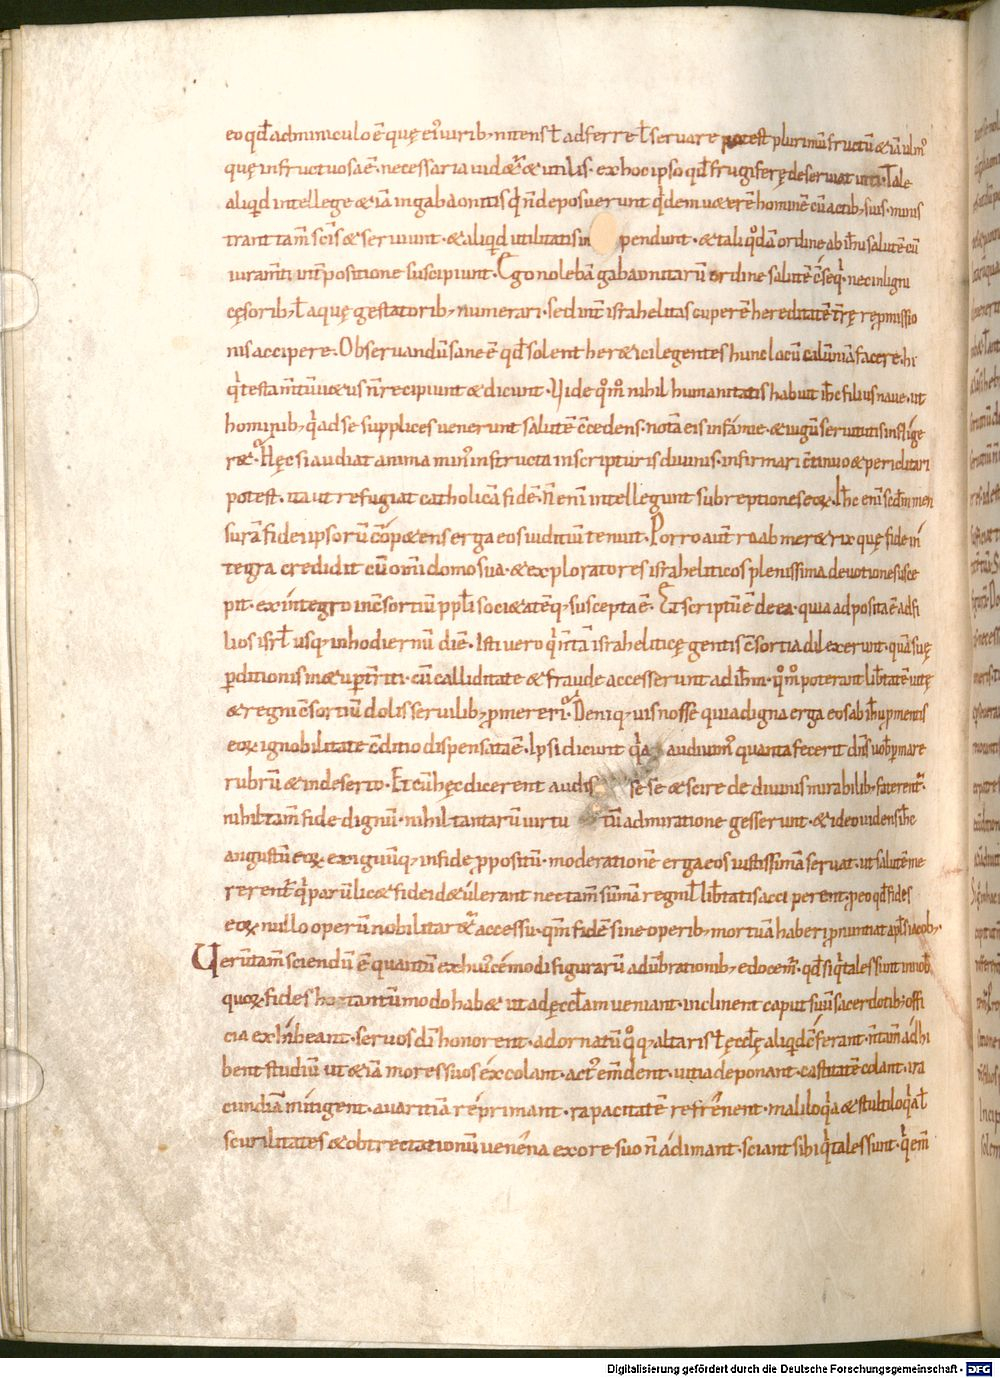 eo qd̄ adminiculo ē quę eiꝰ uirib; nitens ł adferre ł seruare potest plurimū fructū & iā ulmꝰ
quę infructuosa ē· necessaria uidet̄ & utilis· ex hoc ipso qđ frugiferę deseruiat uiti· Tale
aliqid intellege & iā in gabaonitis q̇ n̄ deposuerunt q̇dem ueterē hominē cū actib; suis· minis
trant tam̄ sc̄is & seruiunt· & aliqid utilitatis in pendunt· & tali qͦdā ordine ab ih̄u salutē cū
iuram̄ti int̄positione suscipiunt· Ego nolebā gabaonitarū ordine salutē c̄seq̇· nec in ligni
cęsorib; ł aquę gestatorib; numerari· sed int̄ israhelitas cuperē hereditatē tr̄ę repmissio
nis accipere· Obseruandū sane ē qđ solent her&ici legentes hunc locū calūniā facere· hi
q̇ testam̄tū uetus n̄ recipiunt & dicunt· Vide qͦmͦ nihil humanitatis habuit ih̄c filius naue· ut
hominib; q̇ ad se supplices uenerunt salutē c̄cedens· notā eis infamie· & iugū seruitutis inflige
ret· Hęc si audiat anima minꝰ instructa in scripturis diuinis· infirmari c̄tinuo & periclitari
potest· ita ut refugiat catholicā fidē· n̄ enī intellegunt subreptiones eoꝝ· Ih̄c enī scđm men
surā fidei ipsorū cōpetens erga eos iuditiū tenuit· Porro aut̄ raab meretrix quę fide in
tegra credidit cū om̄i domo sua· & exploratores israheliticos plenissima deuotione susce
pit· ex integro in c̄sortiū ppl̄i societateq; suscepta ē· Et scriptū ē de ea· quia adposita ē ad fi
lios isrł usq; in hodiernū diē· Isti uero q̇ n̄ tā israheliticę gentis c̄sortia dilexerunt· quā suę
p̄ditionis metu p̄t̄riti· cū calliditate & fraude accesserunt ad ih̄m· qͦmͦ poterant lib̄tatē uitę
& regni c̄sortiū dolis seruilib; p̄mereri· Deniq; uis nosse quia digna erga eos ab ih̄u p̄ mentis
eoꝝ ignobilitate c̄ditio dispensata ē· Ipsi dicunt q̇a audiuimꝰ quanta fecerit dn̄s uob̄ p̄ mare
rubrū & in deserto· Et cū hęc dicerent audis se se & scire de diuinis mirabilib; faterent̄·
nihil tam̄ fide dignū· nihil tantarū uirtu tū admiratione gesserunt· & ideo uidens ih̄c
angustū eoꝝ· exiguūq; in fide p̄positū· moderationē erga eos iustissimā seruat· ut salutē me
rerent̄ q̇ parū licet fidei detulerant nec tam̄ sūmā regni ł lib̄tatis acciperent· p̄ eo qđ fides
eoꝝ nullo operū nobilitaretur accessu· qm̄ fidē sine operib; mortuā haberi p̄nuntiat apl̄s iacob;
Uerūtam̄ sciendū ē quantū ex huꝰcemodi figurarū adūbrationib; edocemꝰ· qđ si q̇ tales sunt in nob̄
quoꝝ fides hoc tantūmodo habet ut ad ęccłam ueniant· inclinent caput suū sacerdotib; offi
cia exhibeant· seruos dī honorent· ad ornatū qͦq; altaris ł ęccłę aliqid c̄ferant· n̄ tam̄ adhi
bent studiū ut & iā mores suos excolant· actꝰ emdent· uitia deponant· castitatē colant· ira
cundiam mitigent· auaritiā reprimant· rapacitatē refrenent· maliloq̇a & stultiloq̇a ł
scurilitates & obtrectationū uenena ex ore suo n̄ adimant· sciant sibi q̇ tales sunt· q̇ em̄
Digitalisierung gefördert durch die Deutsche Forschungsgemeinschaft - DFG